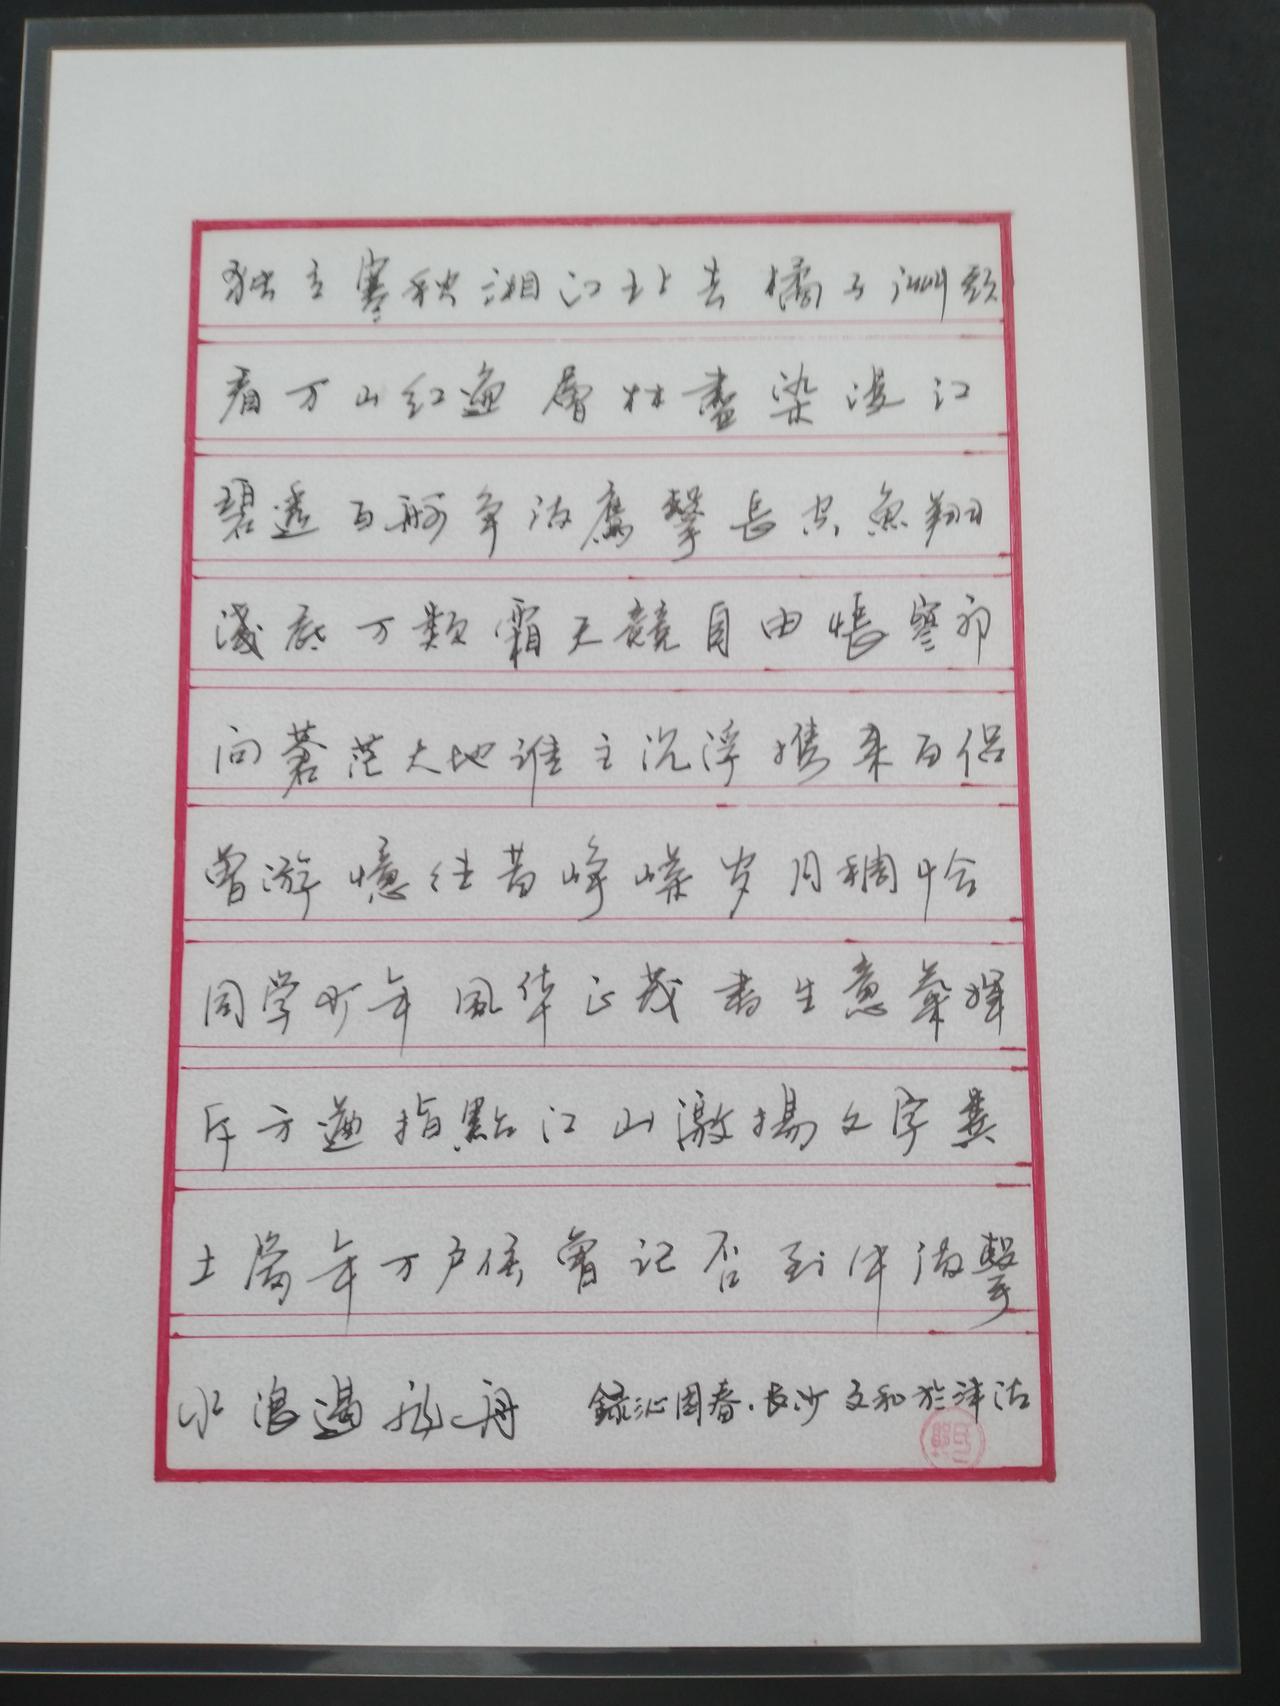 独立寒秋湘江北去橘子洲頭
看万山红遍層林盡染漫江
碧透百舸争流鷹擊長空魚翔
淺底万類霜天競自由悵寥廓
问蒼茫大地谁主沉浮携来百侣
曾游憶往昔峥嵘岁月稠恰
同学少年風华正茂書生意氣揮
斥方遒指點江山激揚文字糞
土當年万户侯曾记否到中流擊
水浪遏飛舟 錄沁园春·長沙 文和於津沽